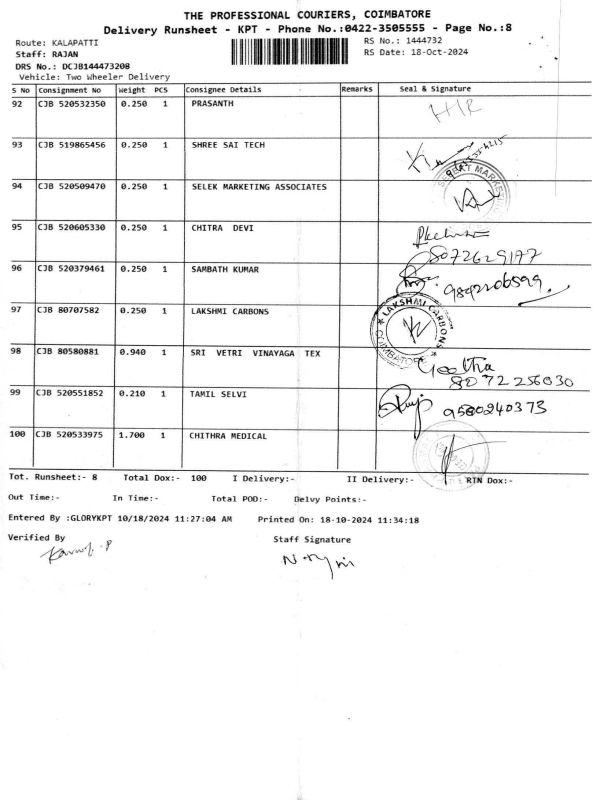 THE PROFESSIONAL COURIERS, COIMBATORE
Delivery Runsheet - KPT - Phone No.:0422-3505555 - Page No.:8
Route: KALAPATTI
RS No.: 1444732
Staff: RAJAN
RS Date: 18-Oct-2024
DRS No.: DCJB144473208
Vehicle: Two Wheeler Delivery
S No Consignment No Weight PCS Consignee Details Remarks Seal & Signature
92 CJB 520532350 0.250 1 PRASANTH
93 CJB 519865456 0.250 1 SHREE SAI TECH
94 CJB 520509470 0.250 1 SELEK MARKETING ASSOCIATES
95 CJB 520605330 0.250 1 CHITRA DEVI
8072629177
96 CJB 520379461 0.250 1 SAMBATH KUMAR
9892206599
97 CJB 80707582 0.250 1 LAKSHMI CARBONS
* LAKSHMI CARBONS * COIMBATORE
98 CJB 80580881 0.940 1 SRI VETRI VINAYAGA TEX
Geetha
80 72 256030
99 CJB 520551852 0.210 1 TAMIL SELVI
9580240373
100 CJB 520533975 1.700 1 CHITHRA MEDICAL
Tot. Runsheet:- 8 Total Dox:- 100 I Delivery:- II Delivery:- RTN Dox:-
Out Time:- In Time:- Total POD:- Delvy Points:-
Entered By :GLORYKPT 10/18/2024 11:27:04 AM Printed On: 18-10-2024 11:34:18
Verified By Staff Signature